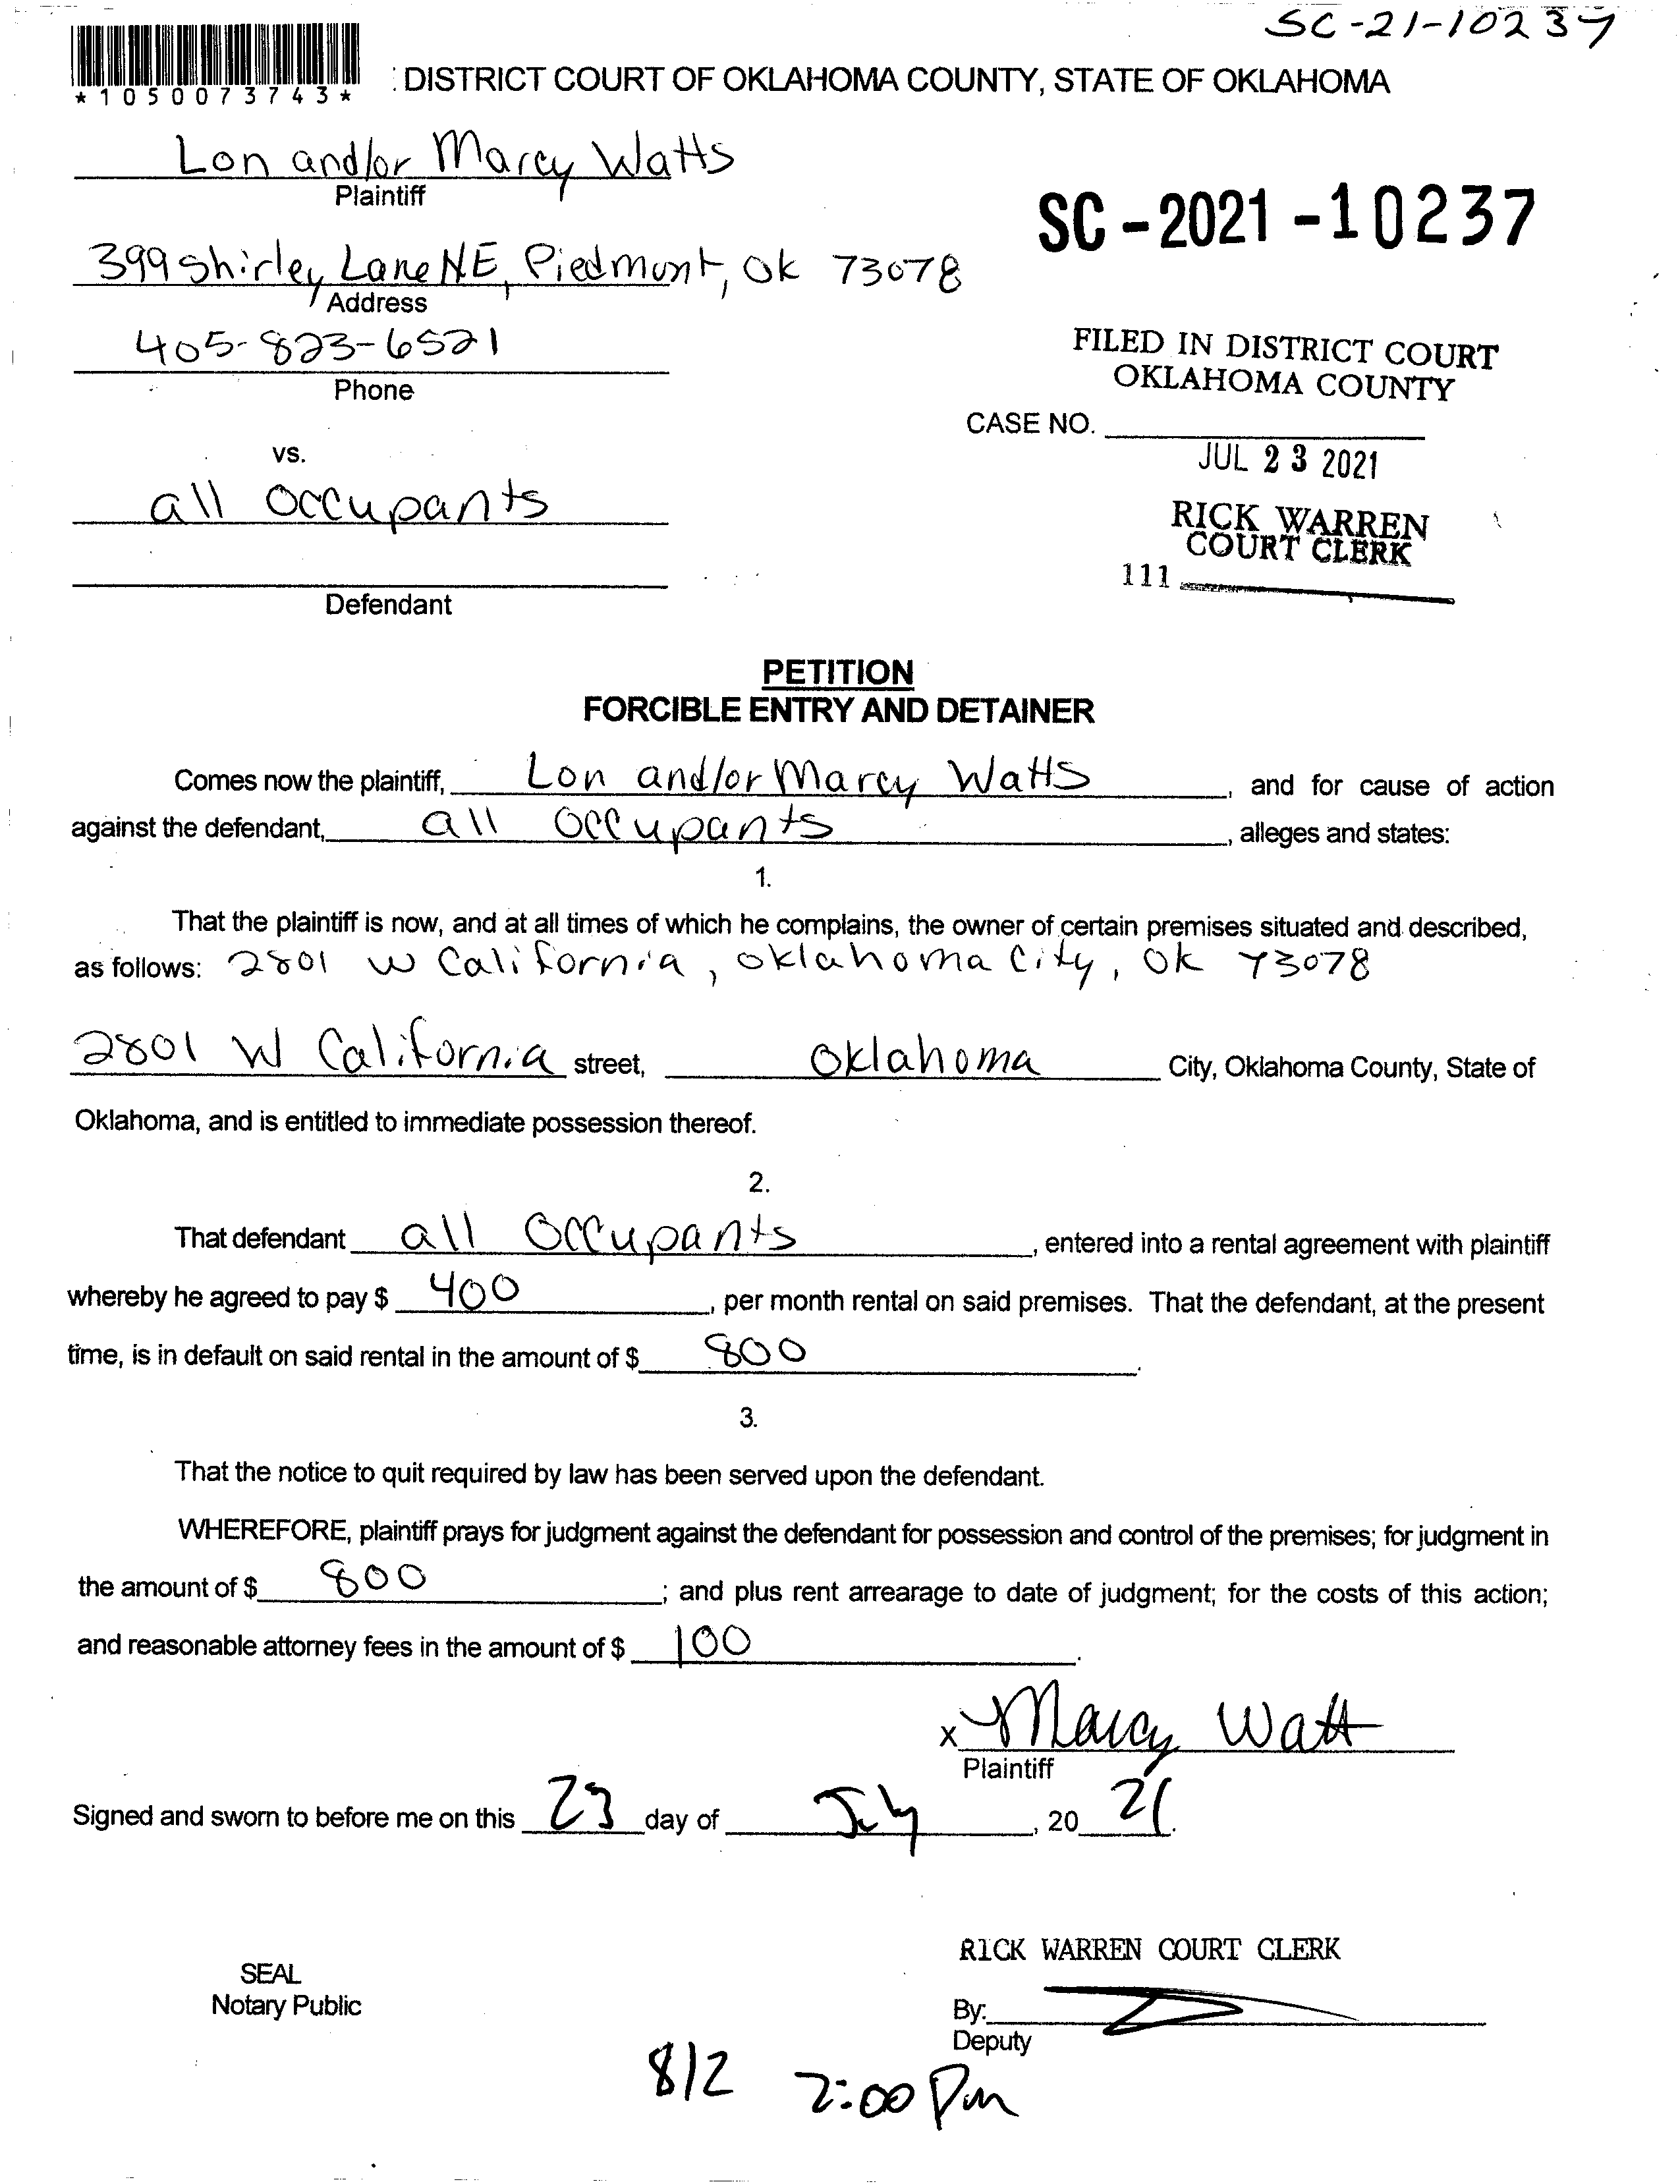 SC-21-10237
*1050073743*
: DISTRICT COURT OF OKLAHOMA COUNTY, STATE OF OKLAHOMA
Lon and/or Marcy Watts
Plaintiff
SC-2021-10237
399 Shirley Lane NE, Piedmont, Ok 73078
Address
405-823-6521
Phone
FILED IN DISTRICT COURT
OKLAHOMA COUNTY
CASE NO.
JUL 23 2021
vs.
all occupants
RICK WARREN
COURT CLERK
111
Defendant
PETITION
FORCIBLE ENTRY AND DETAINER
Comes now the plaintiff, Lon and/or Marcy Watts, and for cause of action
against the defendant, all occupants, alleges and states:
1.
That the plaintiff is now, and at all times of which he complains, the owner of certain premises situated and described,
as follows: 2801 W California, oklahoma City, Ok 73078
2801 W California street, Oklahoma City, Oklahoma County, State of
Oklahoma, and is entitled to immediate possession thereof.
2.
That defendant all occupants, entered into a rental agreement with plaintiff
whereby he agreed to pay $ 400, per month rental on said premises. That the defendant, at the present
time, is in default on said rental in the amount of $ 800.
3.
That the notice to quit required by law has been served upon the defendant.
WHEREFORE, plaintiff prays for judgment against the defendant for possession and control of the premises; for judgment in
the amount of $ 800; and plus rent arrearage to date of judgment; for the costs of this action;
and reasonable attorney fees in the amount of $ 100.
x Marcy Watt
Plaintiff
Signed and sworn to before me on this 23 day of July, 20 21.
RICK WARREN COURT CLERK
SEAL
Notary Public
By:
Deputy
8/2 2:00 Pm